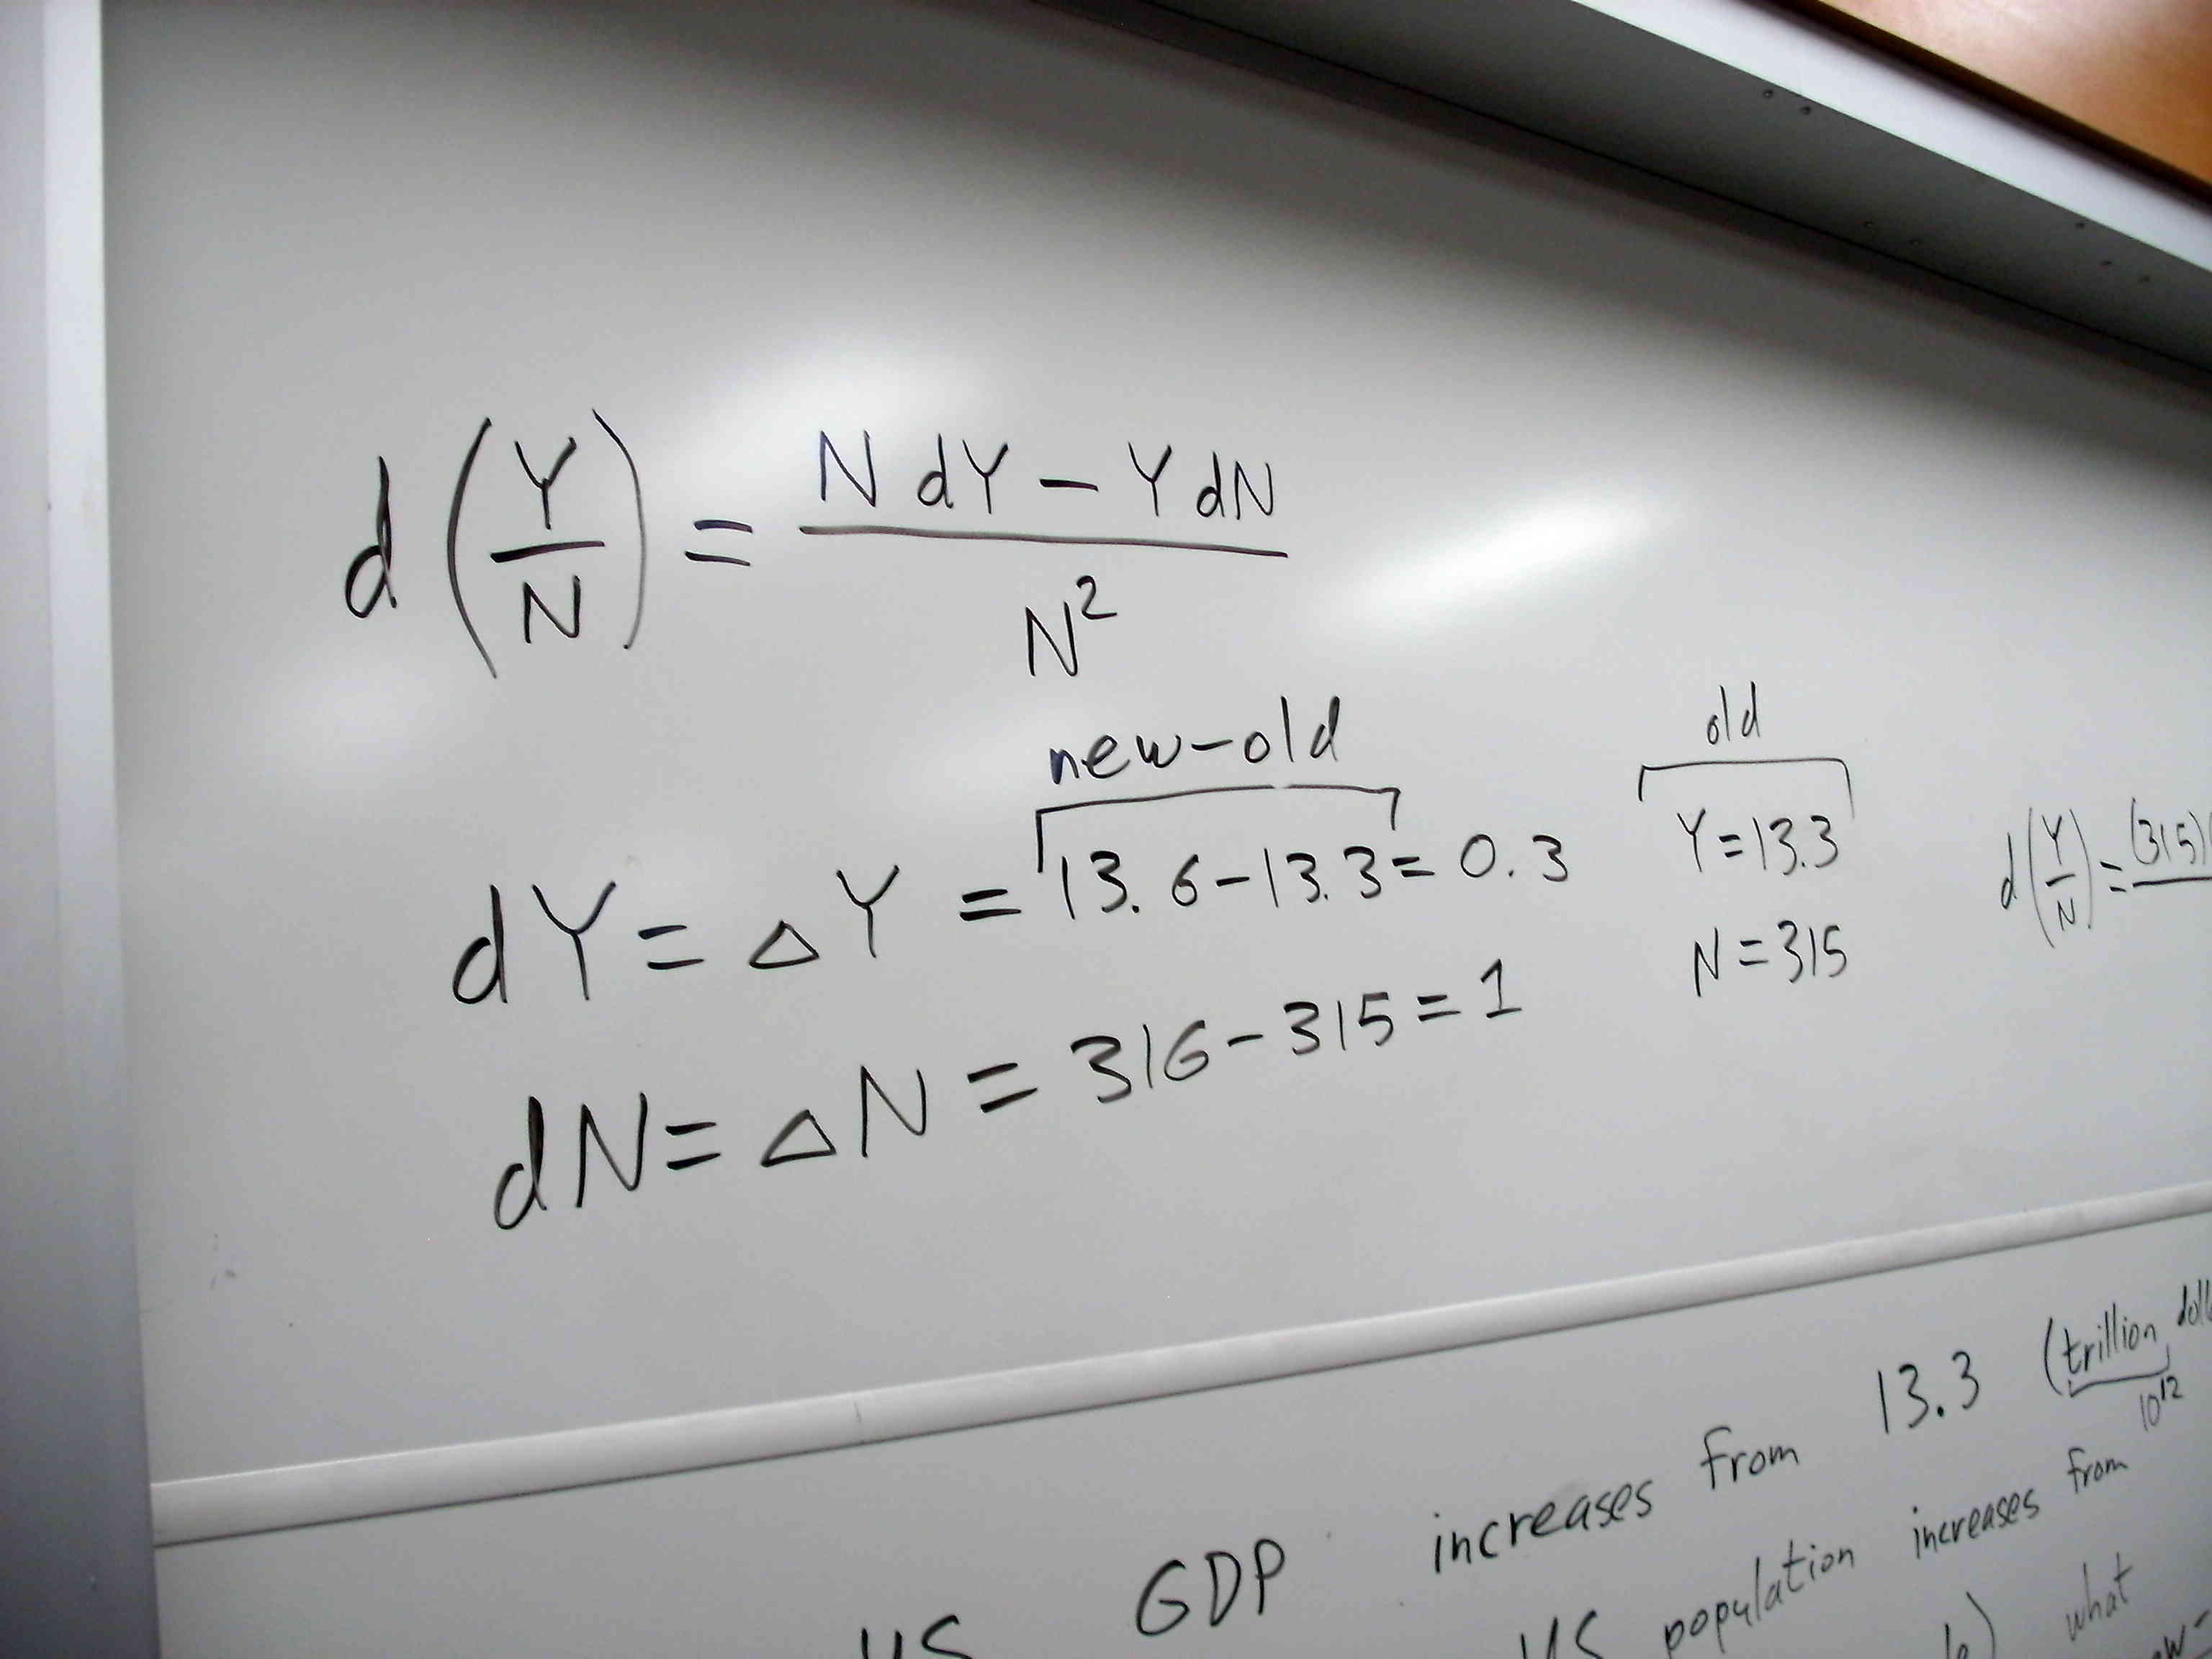 d(Y/N) = (N dY - Y dN)/N²
new-old
old
dY = ΔY = 13.6-13.3 = 0.3
Y=13.3
dN = ΔN = 316-315 = 1
N=315
d(Y/N) = (315)(
US GDP increases from 13.3 (trillion
10¹²
US population increases from
b) what